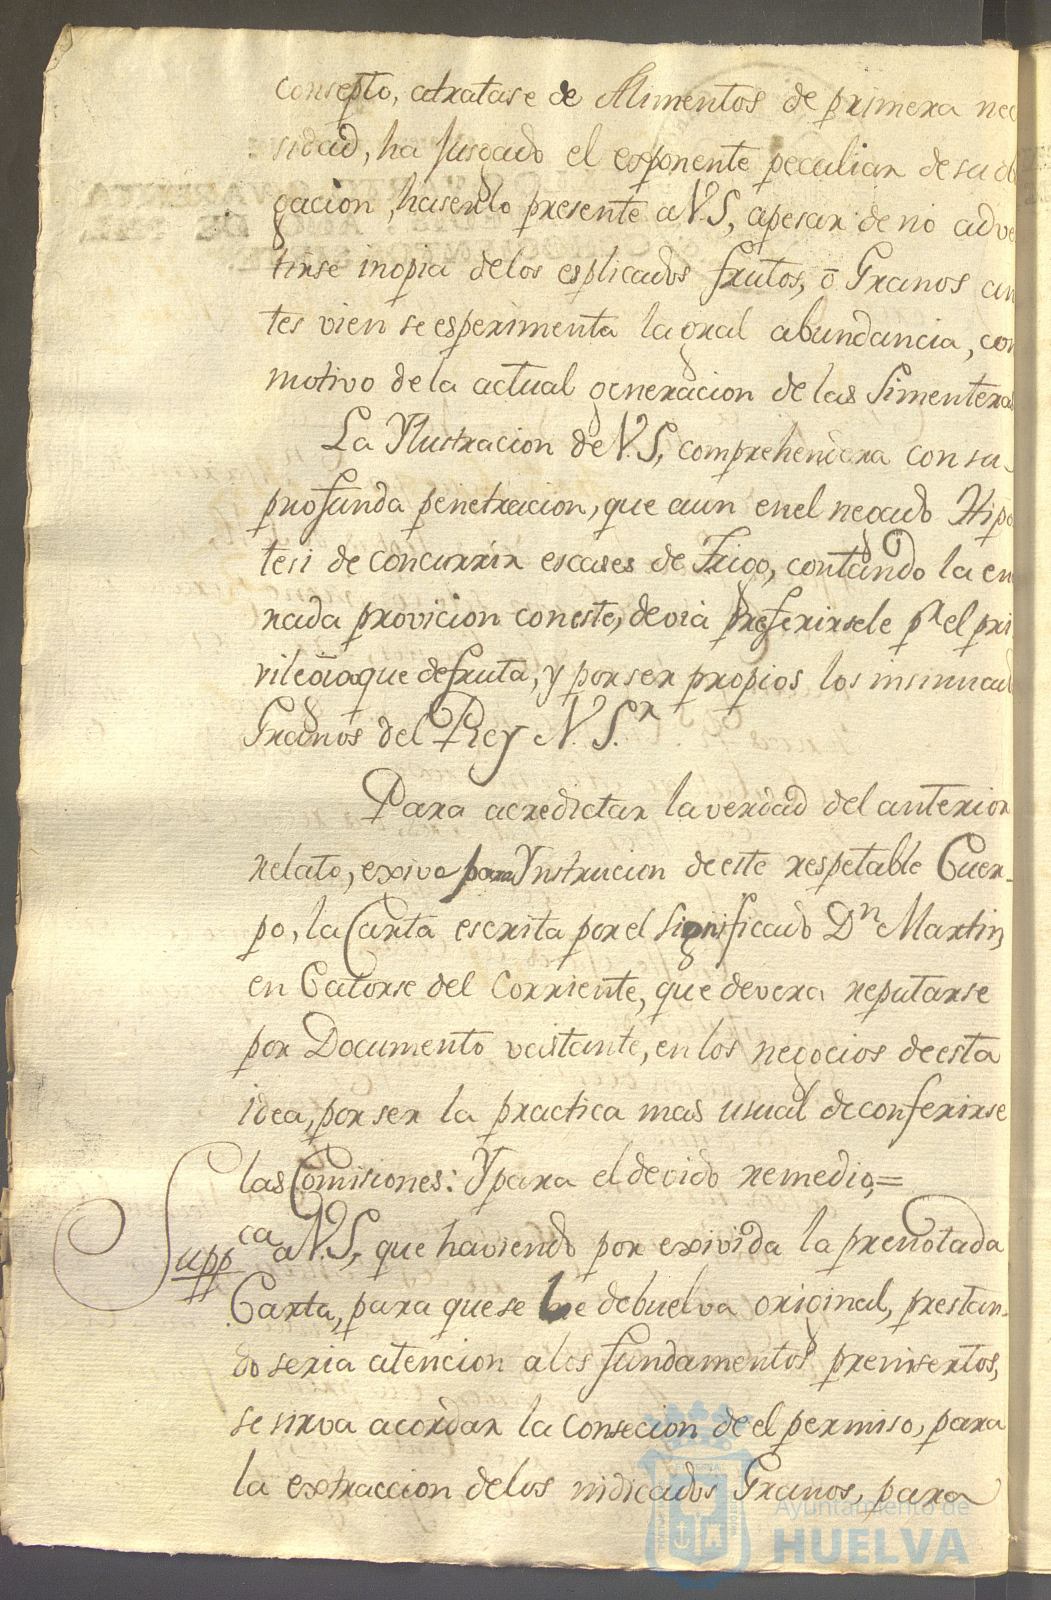 consepto, atratase de Alimentos de primera nec
sidad, ha Jusgado el exponente peculiar de su obl
gacion, haserlo presente a V.S, apesar de no adve
tirse inopia delos esplicados frutos, o Granos an
tes vien se esperimenta la gral abundancia, con
motivo dela actual generacion de las Simenteras
La Ylustracion de V.S, comprehendera con su
profunda penetracion, que aun enel negado Hipo
tesi de concurrir escases de Trigo, contando la en
rada provicion coneste, devia preferirsele pª el pri
vilegio que defruta, y por ser propios los insinuad
Granos del Rey N. S.r
Para acredictar la verdad del anterior
relato, exivo para Ynstrucion de este respetable Cuer-
po, la Carta escrita por el significado Dn Martin,
en Catorse del Corriente, que devera reputarse
por Documento vastante, en los negocios de esta
idea, por ser la practica mas usual de conferirse
las Comisiones: Y para el devido remedio,=
Suppca a V.S, que haviendo por exivida la prenotada
Carta, para que se le debuelva original, prestan-
do seria atencion a los fundamentos preinsertos,
se sirva acordar la Consecion de el permiso, para
la extraccion delos indicados Granos, para
Ayuntamiento de
HUELVA